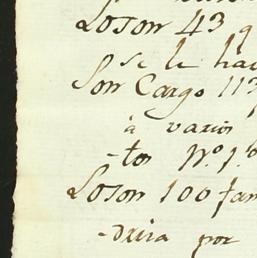 Loson 43 q
se le hai
Son Cargo 113
à varios
-tos Nº 1º
Loson 100 fan
-dxixa por